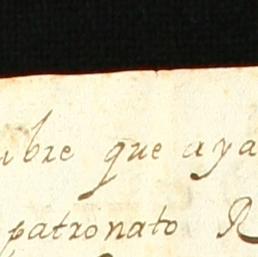 que aya
patronato R